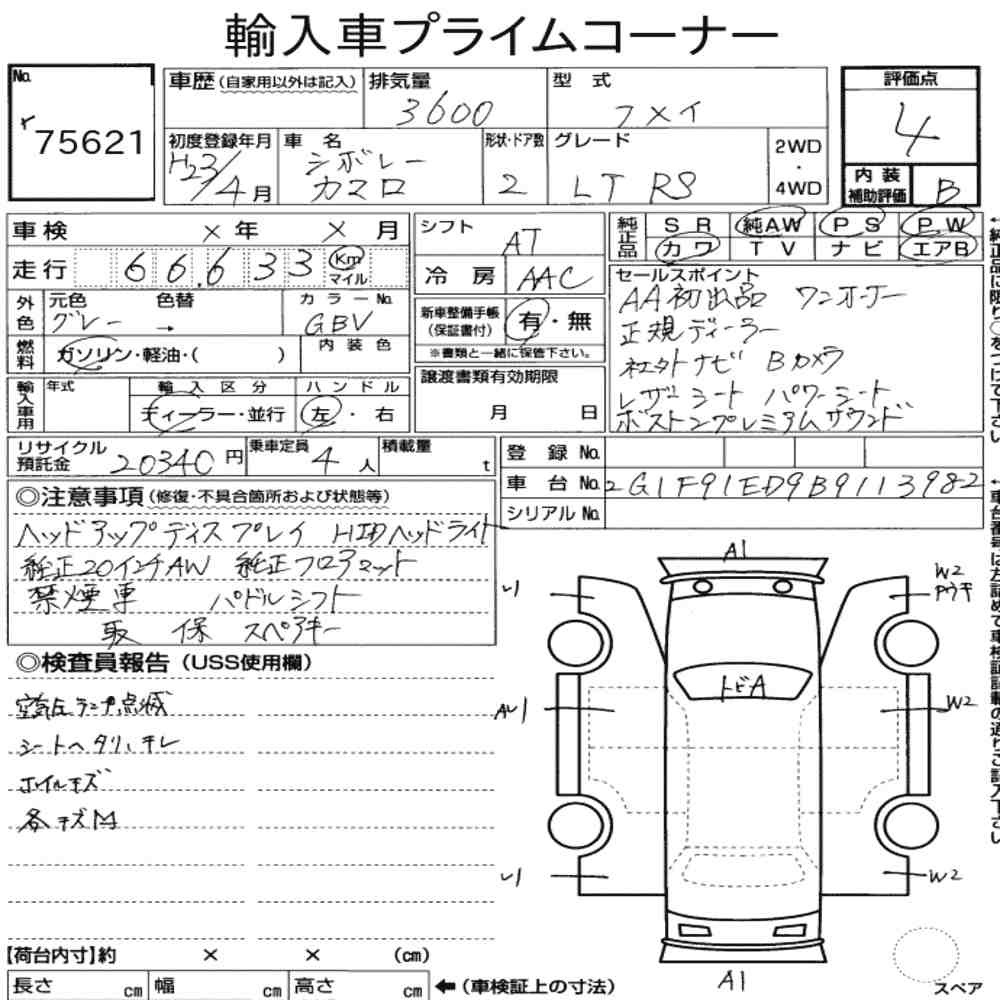 輸入車プライムコーナー
No.
75621
車歴 (自家用以外は記入)
排気量
3600
型式
フメイ
評価点
4
初度登録年月
H23/4月
車名
シボレー
カマロ
形状・ドア数
2
グレード
LT RS
2WD
・
4WD
内装
補助評価
B
車検 × 年 × 月
走行 66,633 Km
マイル
シフト
AT
冷房 AAC
純正品
SR 純AW PS PW
カワ TV ナビ エアB
外色
元色 色替
グレー →
カラーNo.
GBV
新車整備手帳
(保証書付)
有・無
※書類と一緒に保管下さい。
セールスポイント
AA初出品 ワンオーナー
正規ディーラー
社外ナビ Bカメラ
レザーシート パワーシート
ボストンプレミアムサウンド
燃料
ガソリン・軽油・( )
内装色
輸入車用
年式
輸入区分
ディーラー・並行
ハンドル
左・右
譲渡書類有効期限
月 日
リサイクル
預託金
20340円
乗車定員
4人
積載量
t
登録No.
車台No. 2G1F91ED9B9113982
シリアルNo.
◎注意事項 (修復・不具合箇所および状態等)
ヘッドアップディスプレイ HIDヘッドライト
純正20インチAW 純正フロアマット
禁煙車 パドルシフト
取 保 スペアキー
◎検査員報告 (USS使用欄)
空気圧ランプ点滅
シートヘタリ、キレ
ホイルキズ
各キズM
A1
W2
Pウキ
トビA
W2
W2
A1
スペア
【荷台内寸】約 × × (cm)
長さ cm 幅 cm 高さ cm
←(車検証上の寸法)